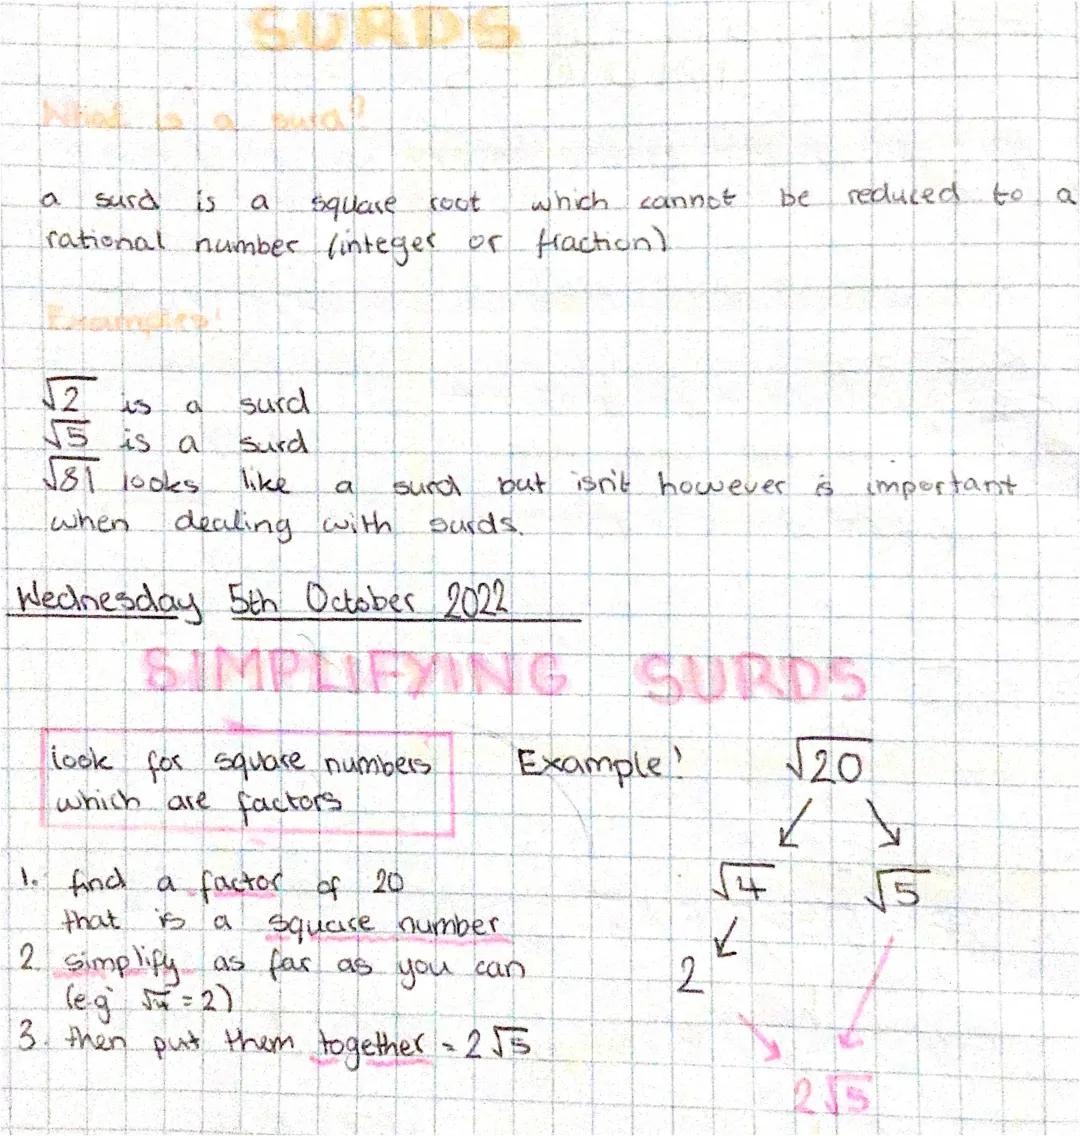 SURDS
What is a surd?
a surd is a square root which cannot be reduced to a
rational number (integer or fraction)
Examples!
√2 is a surd
√5 is a surd
√81 looks like a surd but isn't however is important
when dealing with surds.
Wednesday 5th October 2022
SIMPLIFYING SURDS
look for square numbers
which are factors
Example!
√20
√4 √5
2
2√5
1. find a factor of 20
that is a square number
2 simplify as far as you can
(e.g √4 = 2)
3. then put them together = 2√5